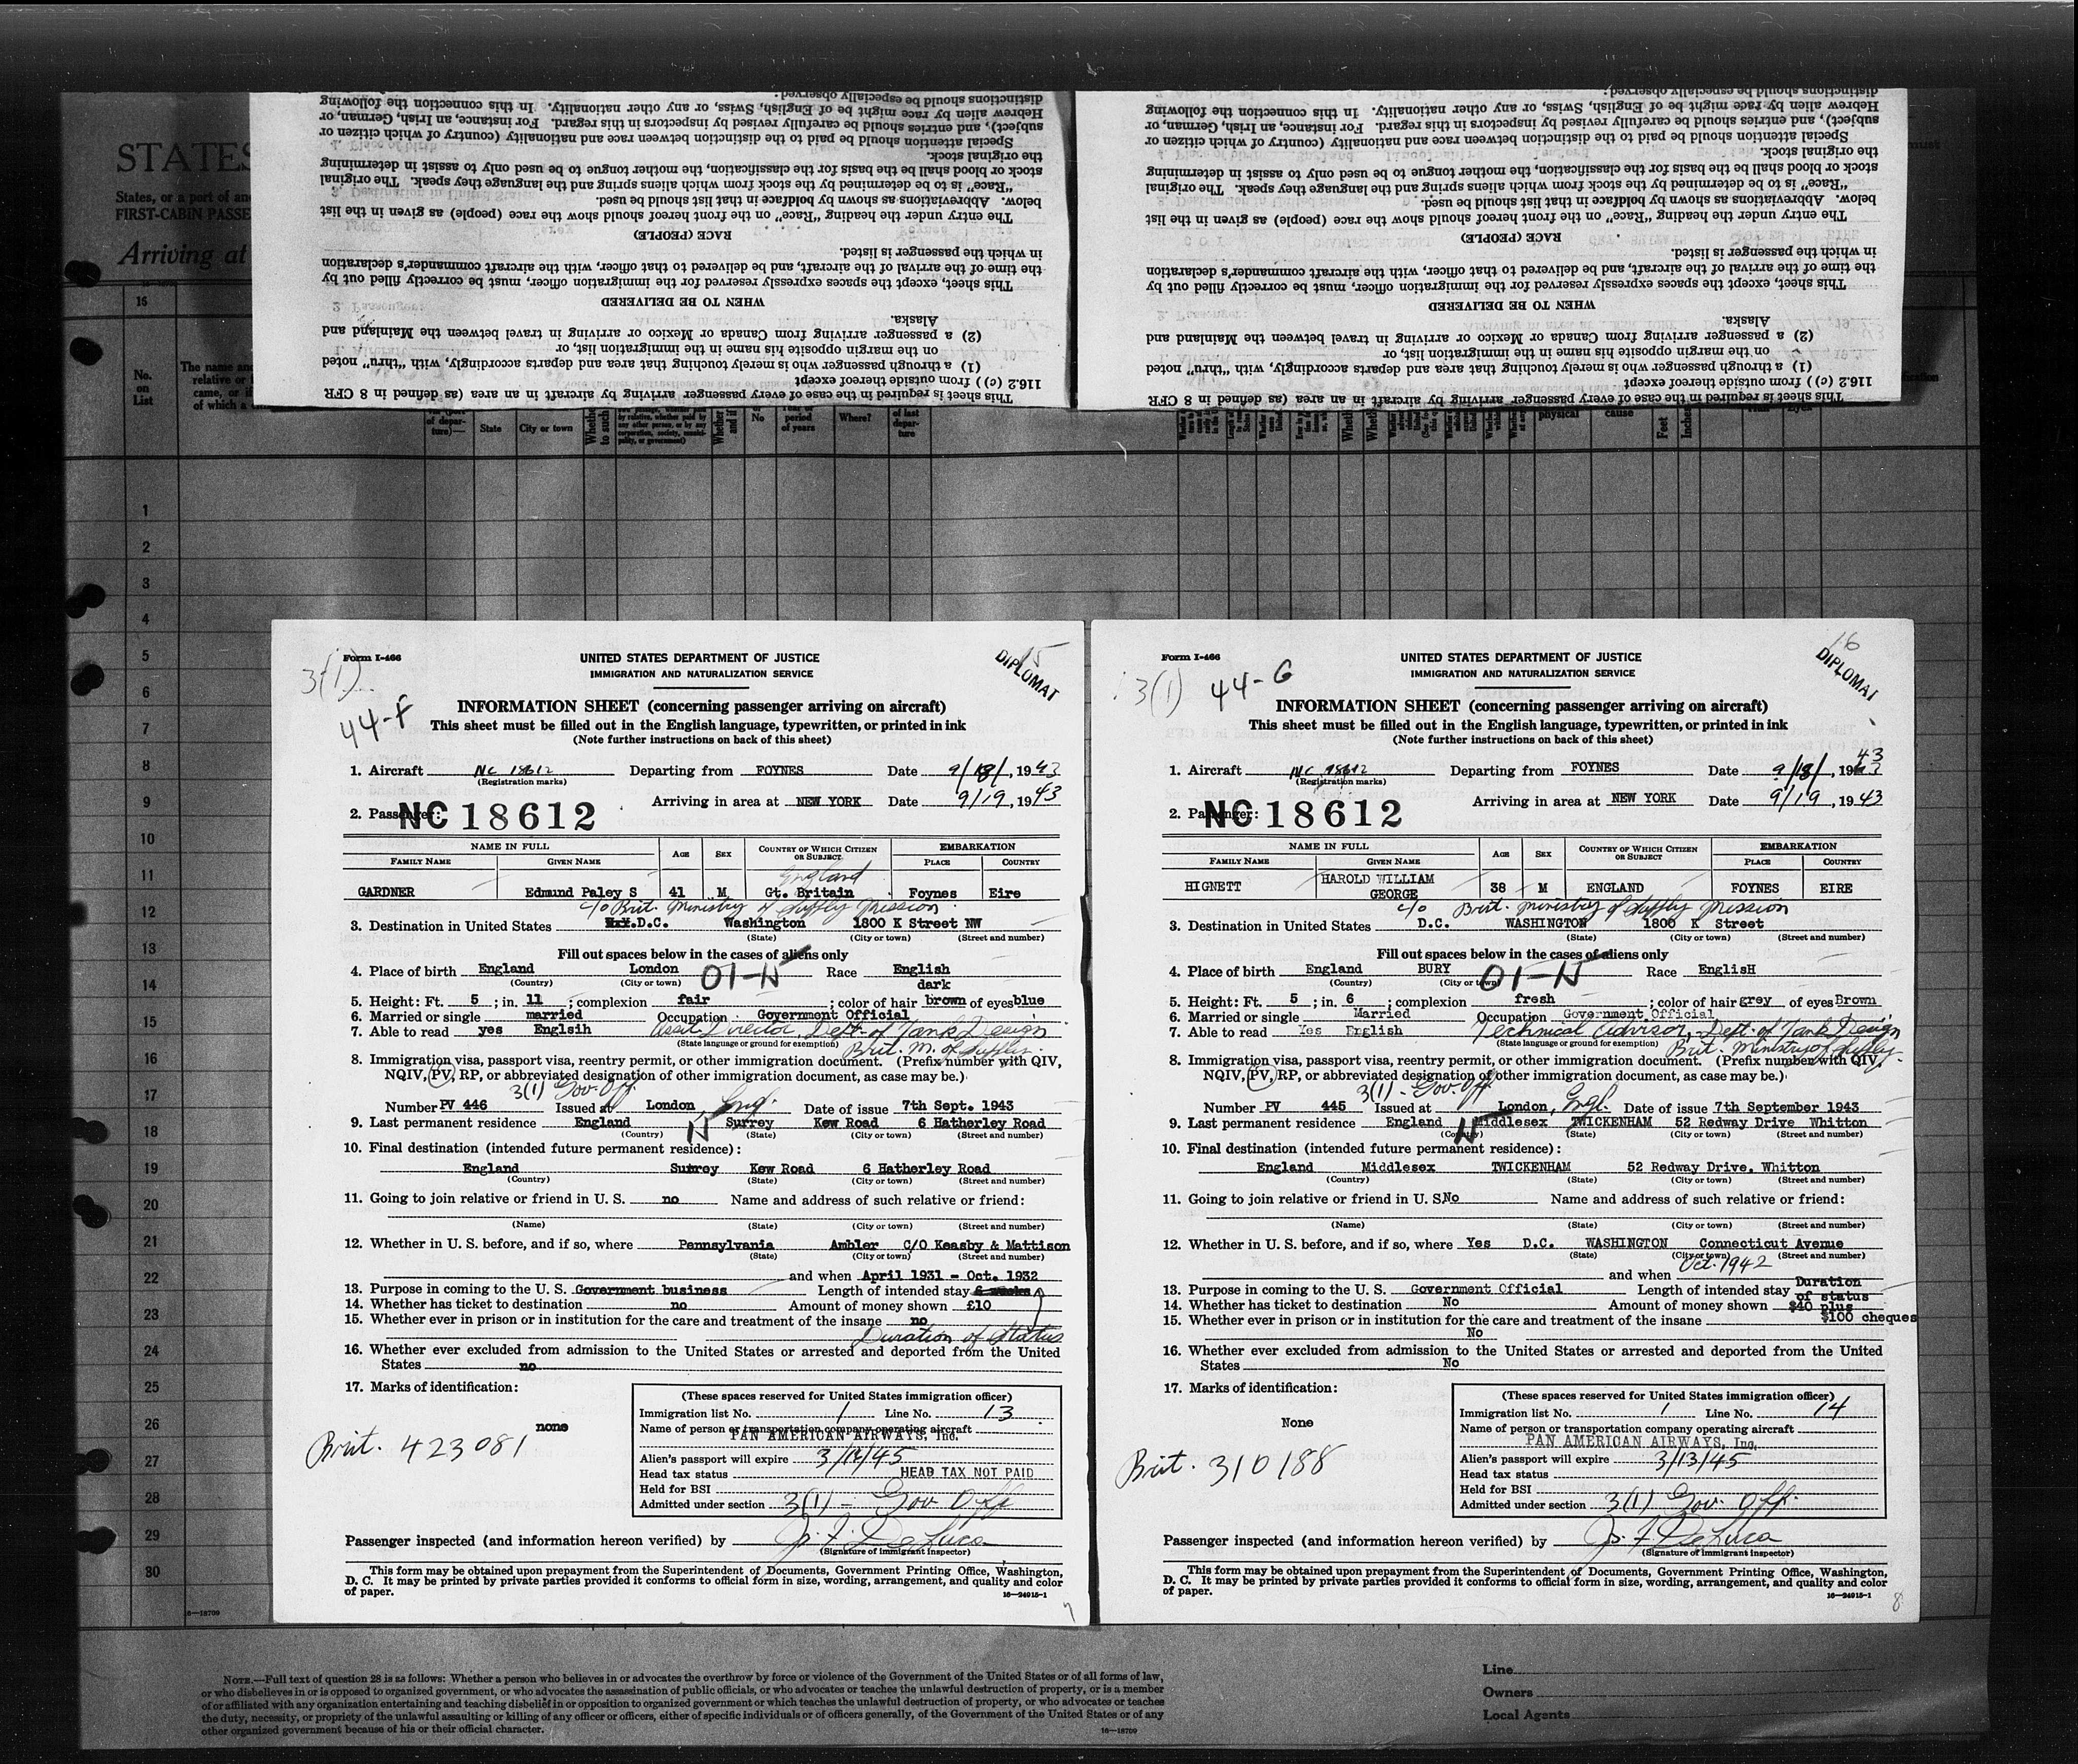 STATES
States, or a part of an
FIRST-CABIN PASSE
Arriving at
16
No. on List
The name and
relative or
came, or if
of which a
State
City or town
No
period of years
Where?
of last depar-ture
physical
cause
Feet
Inches
distinctions should be especially observed:
Hebrew alien by race might be of English, Swiss, or any other nationality. In this connection the following
subject), and entries should be carefully revised by inspectors in this regard. For instance, an Irish, German, or
Special attention should be paid to the distinction between race and nationality (country of which citizen or
the original stock.
stock or blood shall be the basis for the classification, the mother tongue to be used only to assist in determining
"Race" is to be determined by the stock from which aliens spring and the language they speak. The original
below. Abbreviations as shown by boldface in that list should be used.
The entry under the heading "Race" on the front hereof should show the race (people) as given in the list
RACE (PEOPLE)
in which the passenger is listed.
the time of the arrival of the aircraft, and be delivered to that officer, with the aircraft commander's declaration
This sheet, except the spaces expressly reserved for the immigration officer, must be correctly filled out by
WHEN TO BE DELIVERED
Alaska.
(2) a passenger arriving from Canada or Mexico or arriving in travel between the Mainland and
on the margin opposite his name in the immigration list, or
(1) a through passenger who is merely touching that area and departs accordingly, with "thru" noted
116.2 (c)) from outside thereof except
This sheet is required in the case of every passenger arriving by aircraft in an area (as defined in 8 CFR
distinctions should be especially observed:
Hebrew alien by race might be of English, Swiss, or any other nationality. In this connection the following
subject), and entries should be carefully revised by inspectors in this regard. For instance, an Irish, German, or
Special attention should be paid to the distinction between race and nationality (country of which citizen or
the original stock.
stock or blood shall be the basis for the classification, the mother tongue to be used only to assist in determining
"Race" is to be determined by the stock from which aliens spring and the language they speak. The original
below. Abbreviations as shown by boldface in that list should be used.
The entry under the heading "Race" on the front hereof should show the race (people) as given in the list
RACE (PEOPLE)
in which the passenger is listed.
the time of the arrival of the aircraft, and be delivered to that officer, with the aircraft commander's declaration
This sheet, except the spaces expressly reserved for the immigration officer, must be correctly filled out by
WHEN TO BE DELIVERED
Alaska.
(2) a passenger arriving from Canada or Mexico or arriving in travel between the Mainland and
on the margin opposite his name in the immigration list, or
(1) a through passenger who is merely touching that area and departs accordingly, with "thru" noted
116.2 (c)) from outside thereof except
This sheet is required in the case of every passenger arriving by aircraft in an area (as defined in 8 CFR
1
2
3
4
5
6
7
8
9
10
11
12
13
14
15
16
17
18
19
20
21
22
23
24
25
26
27
28
29
30
16—18709
Form I-466
3(1)
44-F
15
DIPLOMAT
UNITED STATES DEPARTMENT OF JUSTICE
IMMIGRATION AND NATURALIZATION SERVICE
INFORMATION SHEET (concerning passenger arriving on aircraft)
This sheet must be filled out in the English language, typewritten, or printed in ink
(Note further instructions on back of this sheet)
1. Aircraft NC 18612 Departing from FOYNES Date 9/18/, 1943
(Registration marks)
Arriving in area at NEW YORK Date 9/19, 1943
2. Passenger: NC 18612
NAME IN FULL AGE SEX COUNTRY OF WHICH CITIZEN OR SUBJECT EMBARKATION
FAMILY NAME GIVEN NAME PLACE COUNTRY
England
GARDNER Edmund Paley S 41 M Gt. Britain Foynes Eire
c/o Brit. Ministry of Supply Mission
3. Destination in United States D.C. Washington 1800 K Street NW
(State) (City or town) (Street and number)
Fill out spaces below in the cases of aliens only
4. Place of birth England London 01-N Race English
(Country) (City or town)
dark
5. Height: Ft. 5; in. 11; complexion fair; color of hair brown of eyes blue
6. Married or single married Occupation Government Official
7. Able to read yes Englsih Asst. Director, Dept. of Tank Design
(State language or ground for exemption) Brit. M. of Supply
8. Immigration visa, passport visa, reentry permit, or other immigration document. (Prefix number with QIV,
NQIV, PV, RP, or abbreviated designation of other immigration document, as case may be.)
3(1) Gov. Off.
Number PV 446 Issued at London Eng. Date of issue 7th Sept. 1943
9. Last permanent residence England N Surrey Kew Road 6 Hatherley Road
(Country) (State) (City or town) (Street and number)
10. Final destination (intended future permanent residence):
England Surrey Kew Road 6 Hatherley Road
(Country) (State) (City or town) (Street and number)
11. Going to join relative or friend in U. S. no Name and address of such relative or friend:
(Name) (State) (City or town) (Street and number)
12. Whether in U. S. before, and if so, where Pennsylvania Ambler C/O Keasby & Mattison
(State) (City or town) (Street and number)
and when April 1931 - Oct. 1932
13. Purpose in coming to the U. S. Government business Length of intended stay 6 weeks
14. Whether has ticket to destination no Amount of money shown £10
15. Whether ever in prison or in institution for the care and treatment of the insane no
Duration of Status
16. Whether ever excluded from admission to the United States or arrested and deported from the United
States no
17. Marks of identification:
none
Brit. 423081
(These spaces reserved for United States immigration officer)
Immigration list No. 1 Line No. 13
Name of person or transportation company operating aircraft
PAN AMERICAN AIRWAYS, Inc.
Alien's passport will expire 3/14/45
Head tax status HEAD TAX NOT PAID
Held for BSI
Admitted under section 3(1) - Gov Off
Passenger inspected (and information hereon verified) by J. F. DeLuca
(Signature of immigrant inspector)
This form may be obtained upon prepayment from the Superintendent of Documents, Government Printing Office, Washington,
D. C. It may be printed by private parties provided it conforms to official form in size, wording, arrangement, and quality and color
of paper.
16—24915-1
7
Form I-466
3(1)
44-G
16
DIPLOMAT
UNITED STATES DEPARTMENT OF JUSTICE
IMMIGRATION AND NATURALIZATION SERVICE
INFORMATION SHEET (concerning passenger arriving on aircraft)
This sheet must be filled out in the English language, typewritten, or printed in ink
(Note further instructions on back of this sheet)
43
1. Aircraft NC 18612 Departing from FOYNES Date 9/18/, 1943
(Registration marks)
Arriving in area at NEW YORK Date 9/19, 1943
2. Passenger: NC 18612
NAME IN FULL AGE SEX COUNTRY OF WHICH CITIZEN OR SUBJECT EMBARKATION
FAMILY NAME GIVEN NAME PLACE COUNTRY
HIGNETT HAROLD WILLIAM GEORGE 38 M ENGLAND FOYNES EIRE
c/o Brit. Ministry of Supply Mission
3. Destination in United States D.C. WASHINGTON 1800 K Street
(State) (City or town) (Street and number)
Fill out spaces below in the cases of aliens only
4. Place of birth England BURY 01-N Race EnglisH
(Country) (City or town)
5. Height: Ft. 5; in. 6; complexion fresh; color of hair grey of eyes Brown
6. Married or single Married Occupation Government Official
7. Able to read Yes English Technical Advisor, - Dept. of Tank Design
(State language or ground for exemption) Brit. Ministry of Supply.
8. Immigration visa, passport visa, reentry permit, or other immigration document. (Prefix number with QIV,
NQIV, PV, RP, or abbreviated designation of other immigration document, as case may be.)
3(1) - Gov. Off
Number PV 445 Issued at London, Engl. Date of issue 7th September 1943
9. Last permanent residence England N Middlesex TWICKENHAM 52 Redway Drive Whitton
(Country) (State) (City or town) (Street and number)
10. Final destination (intended future permanent residence):
England Middlesex TWICKENHAM 52 Redway Drive. Whitton
(Country) (State) (City or town) (Street and number)
11. Going to join relative or friend in U. S. No Name and address of such relative or friend:
(Name) (State) (City or town) (Street and number)
12. Whether in U. S. before, and if so, where Yes D.C. WASHINGTON Connecticut Avenue
(State) (City or town) (Street and number)
and when Oct. 1942
13. Purpose in coming to the U. S. Government Official Length of intended stay Duration of status
14. Whether has ticket to destination No Amount of money shown $40 plus
$100 cheques
15. Whether ever in prison or in institution for the care and treatment of the insane
No
16. Whether ever excluded from admission to the United States or arrested and deported from the United
States No
17. Marks of identification:
None
Brit. 310188
(These spaces reserved for United States immigration officer)
Immigration list No. 1 Line No. 14
Name of person or transportation company operating aircraft
PAN AMERICAN AIRWAYS, Inc.
Alien's passport will expire 3/13/45
Head tax status
Held for BSI
Admitted under section 3(1) Gov. Off.
Passenger inspected (and information hereon verified) by J. F. DeLuca
(Signature of immigrant inspector)
This form may be obtained upon prepayment from the Superintendent of Documents, Government Printing Office, Washington,
D. C. It may be printed by private parties provided it conforms to official form in size, wording, arrangement, and quality and color
of paper.
16—24915-1
8
NOTE.—Full text of question 28 is as follows: Whether a person who believes in or advocates the overthrow by force or violence of the Government of the United States or of all forms of law,
or who disbelieves in or is opposed to organized government, or who advocates the assassination of public officials, or who advocates or teaches the unlawful destruction of property, or is a member
of or affiliated with any organization entertaining and teaching disbelief in or opposition to organized government or which teaches the unlawful destruction of property, or who advocates or teaches
the duty, necessity, or propriety of the unlawful assaulting or killing of any officer or officers, either of specific individuals or of officers generally, of the Government of the United States or of any
other organized government because of his or their official character.
16—18709
Line
Owners
Local Agents